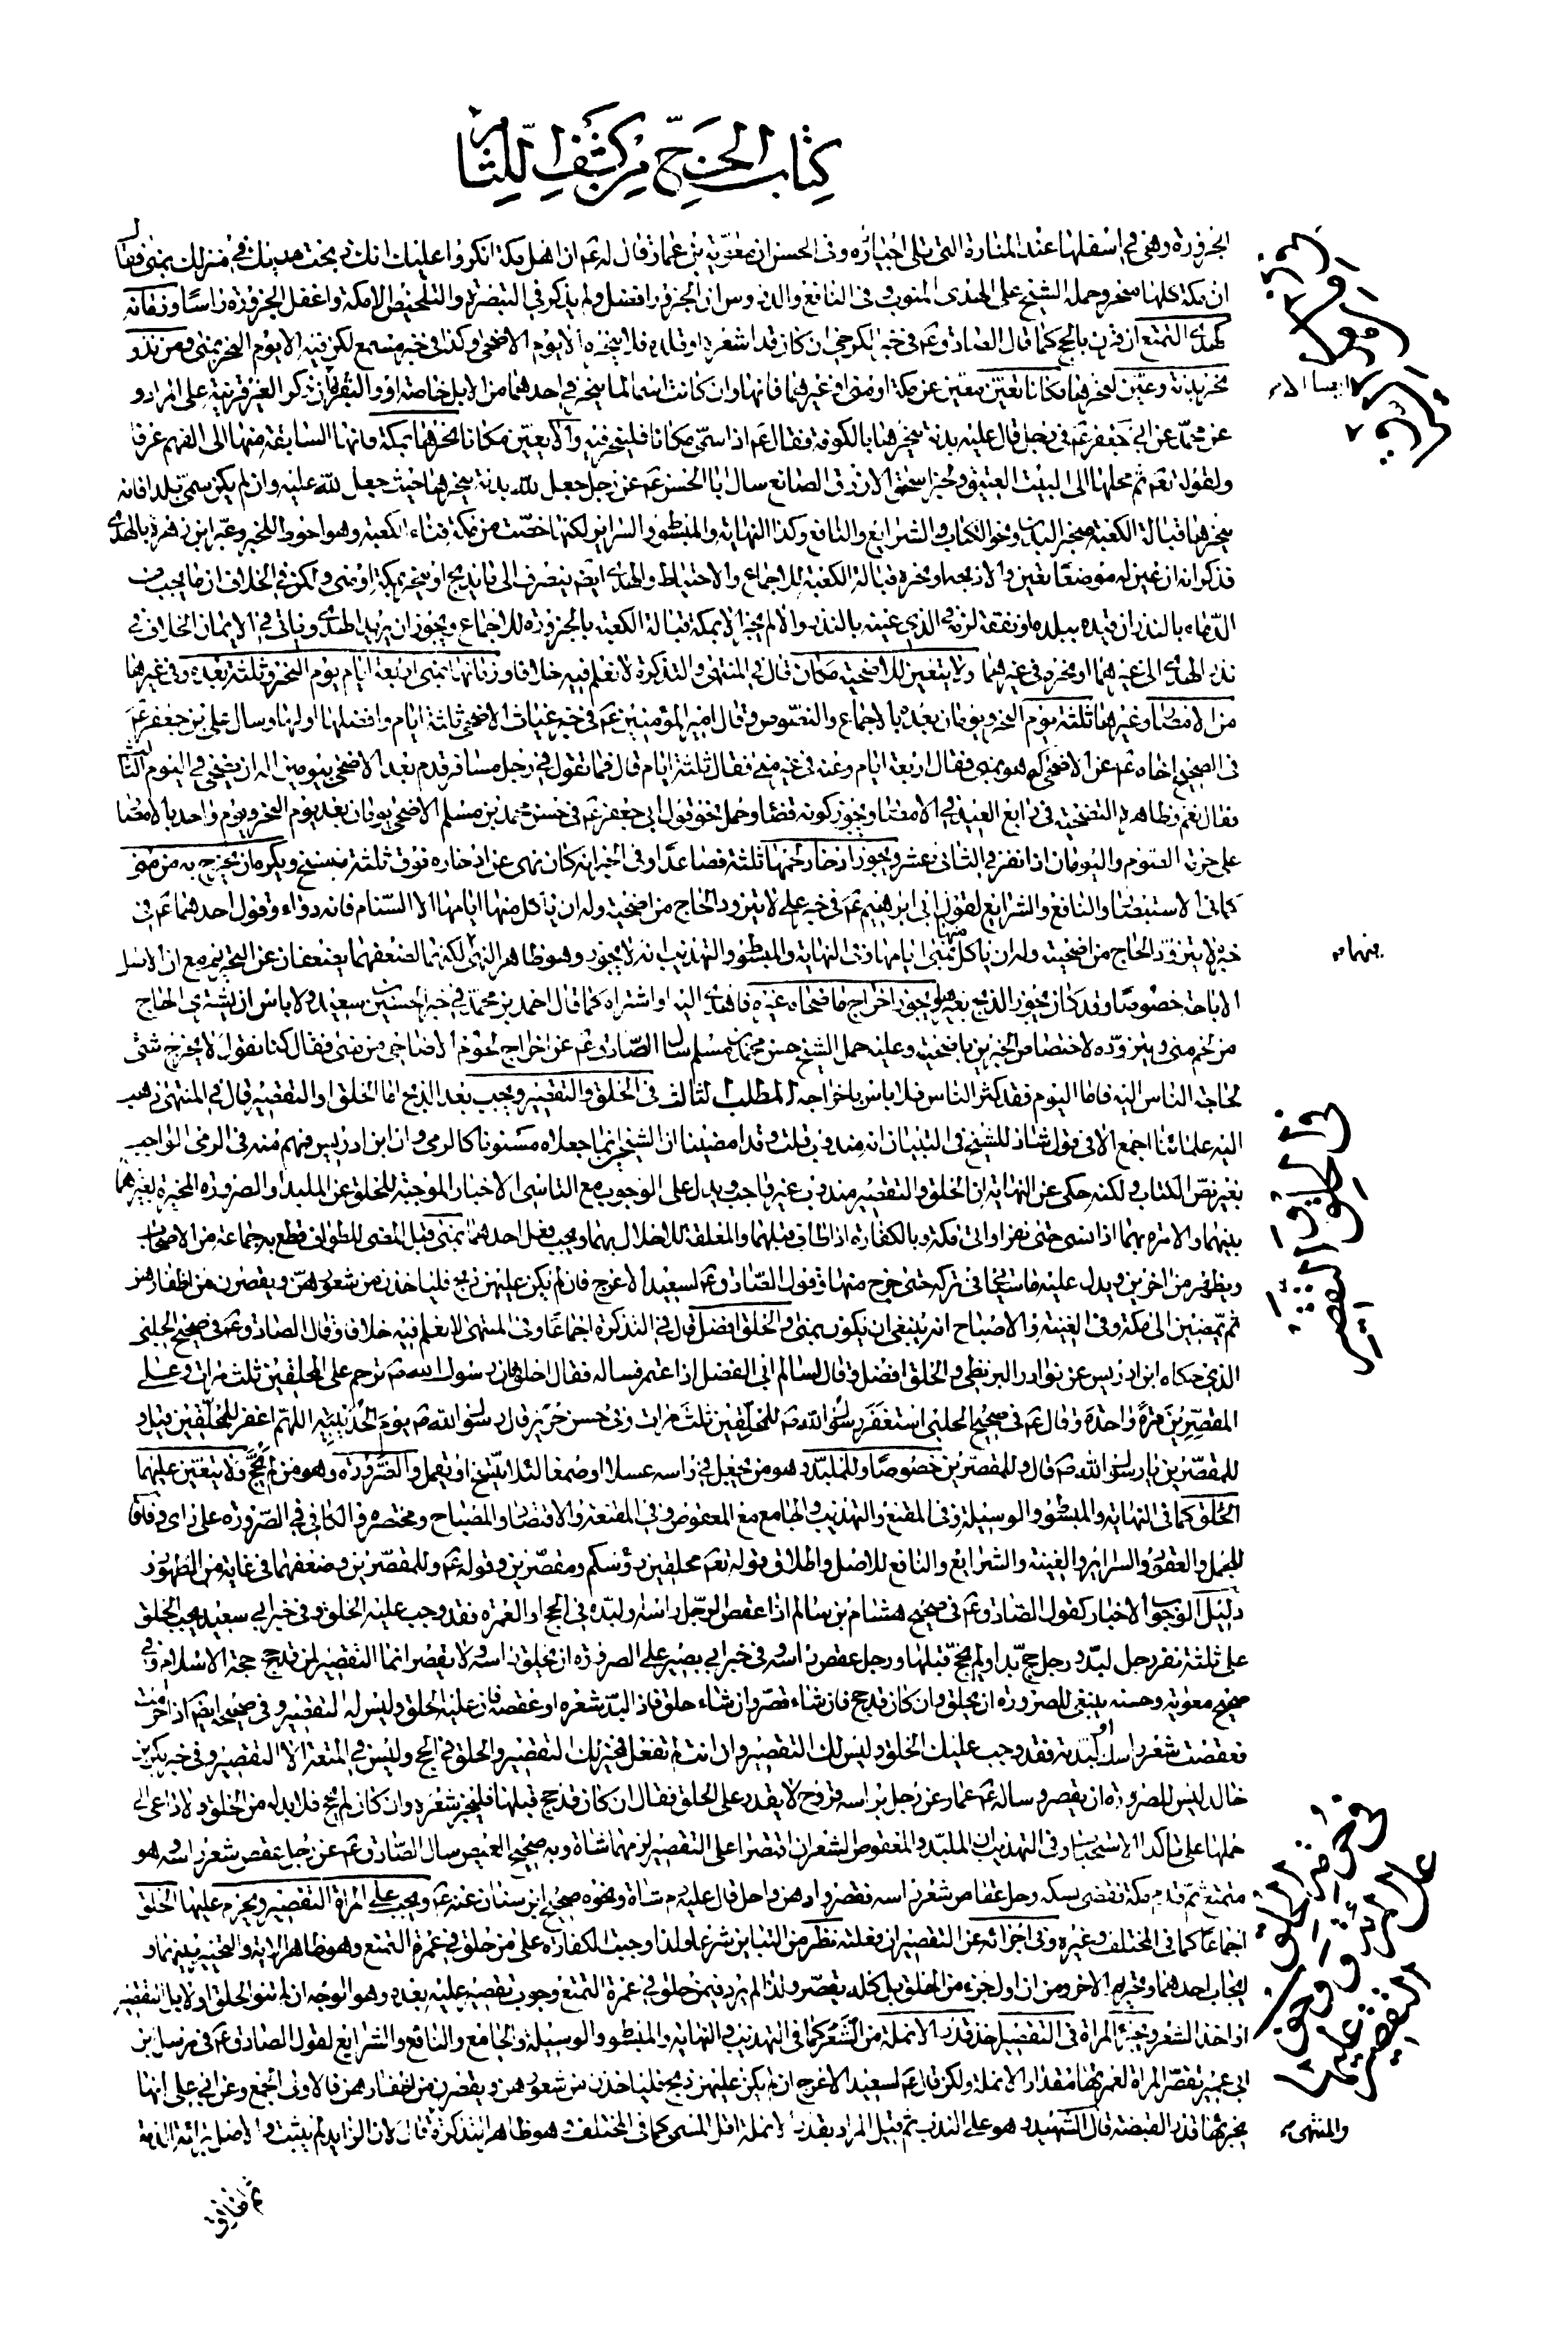 كتاب الحج من كشف اللثام
الجزورة وهي في اسفلها عند المنارة التي تلي اجياد وفى الحسن ان معوية بن عمار قال له ع ان اهل مكة انكروا عليك انك ذبحت هديك في منزلك بمنى فقال
ان مكة كلها منحر وحمله الشيخ على الهدى المندوب وفى النافع والدروس ان الجزورة افضل ولم يذكر في التبصرة والتلخيص الا مكة واغفل الجزورة راسا وزمانه
كهدى التمتع ان قرن بالحج كما قال الصادق ع في خبر الكرخي ان كان قد اشعره او قلده فلا ينحره الا يوم الاضحى وكذا في خبر مسمع لكن فيه الا يوم النحر بمنى ومن نذر
نحر بدنة وعين لنحرها مكانا تعين معين عن مكة او منى او غيرهما فانها وان كانت اسما لما ينحر في احدهما من الابل خاصة او والبقر لكن ذكر الغير قرينة على المراد و
عن محمد عن ابي جعفر ع في رجل قال عليه بدنة ينحرها بالكوفة فقال ع اذا سمى مكانا فلينحر فيه والا يعين مكانا نحرها بمكة فانها السابقة منها الى الفهم عرفا
ولقوله تعم ثم محلها الى البيت العتيق وخبر اسحق الازرق الصائع سال ابا الحسن ع عن رجل جعل لله بدنة ينحرها حيث جعل لله عليه وان لم يكن سمى بلدا فانه
ينحرها قبالة الكعبة منحر البدن ونحو الكتاب الشرايع والنافع وكذا النهاية والمبسوط والسراير لكنها خصت من مكة فناء الكعبة وهو احوط للخبر وعبر ابن زهرة بالهدى
فذكر انه ان عين له موضعا تعين والا ذبحه او نحره قبالة الكعبة للاجماع والاحتياط والهدى ايضم ينصرف الى ما يذبح او ينحر بمكة او منى ولكن في الخلاف ان ما يجب من
الدماء بالنذر ان قيده ببلد او بقعة لزمه في الذي عينه بالنذر والا لم يجز الا بمكة قبالة الكعبة بالجزورة للاجماع ويجوز ان يريد الهدى وياتي في الايمان الخلاف في
نذر الهدى الى غيرهما او نحره في غيرهما ولا يتعين للاضحية مكان قال في المنتهى والتذكرة لا نعلم فيه خلافا وزمانها بمنى اربعة ايام يوم النحر وثلثة بعده وفى غيرها
من الامصار وغيرها ثلثة يوم النحر ويومان بعده بالاجماع والنصوص وقال امير المؤمنين ع في خبر غياث الاضحى ثلثة ايام وافضلها اولها وسال علي بن جعفر ع
فى الصحيح اخاه ع عن الاضحى كم هو بمنى فقال اربعة ايام وعنه في غير منى فقال ثلثة ايام قال فما تقول في رجل مسافر قدم بعد الاضحى بيومين اله ان يضحى في اليوم الثالث
فقال نعم وظاهره التضحية في رابع العيد في الامصار ويجوز كونه قضاء وحمل نحو قول ابي جعفر ع في حسن محمد بن مسلم الاضحى يومان بعد يوم النحر ويوم واحد بالامصار
على حرمة الصوم واليومان اذا نفر في الثاني عشر ويجوز ادخار لحمها ثلثة فصاعدا وفي اخبار انه كان نهى عن ادخاره فوق ثلثة فنسخ ويكره ان يخرج به من منى
كما في الاستبصار والنافع والشرايع لقول ابي ابراهيم ع في خبر علي لا يتزود الحاج من اضحيته وله ان ياكل منها ايامها الا السنام فانه دواء وقول احدهما ع في
خبره لا يتزود الحاج من اضحيته وله ان ياكل منها بمنى ايامها وفى النهاية والمبسوط والتهذيب انه لا يجوز وهو ظاهر النهى لكنهما لضعفهما يضعفان عن التحريم مع ان الاصل
الاباحة خصوصا وقد كان يجوز الذبح بغيره ويجوز اخراج ما ضحاه غيره فاهدى اليه او اشتراه كما قال احمد بن محمد في خبر الحسين بن سعيد ولا باس ان يشترى الحاج
من لحم منى ويتزوده لاختصاص الخبرين باضحيته وعليه حمل الشيخ حسن محمد بن مسلم سال الصادق ع عن اخراج لحوم الاضاحي من منى فقال كنا نقول لا يخرج شئ
لحاجة الناس اليه فاما اليوم فقد كثر الناس فلا باس باخراجه المطلب الثالث فى الحلق والتقصير ويجب بعد الذبح اما الحلق او التقصير قال في المنتهى ذهب
اليه علمائنا اجمع الا في قول شاذ للشيخ في التبيان انه مندوب قلت وقد امضينا ان الشيخ انما جعله مسنونا كالرمي وان ابن ادريس فهم منه فى الرمى الواجب
بغير نص الكتاب ولكنه حكى عن النهاية ان الحلق والتقصير مندوب غير واجب ويدل على الوجوب مع التاسى الاخبار الموجبة للحلق عن الملبد والصرورة المخيرة لغيرهما
بينهما والامرة بهما اذا نسى حتى نفر او اتى مكة وبالكفارة اذا طاف قبلهما والمعلقة للاحلال بهما ويجب فعل احدهما بمنى قبل المضى للطواف قطع به جماعة من الاصحاب
ويظهر من اخرين ويدل عليه ما سيجئ في تركه حتى خرج منها وقول الصادق ع لسعيد الاعرج فان لم يكن عليهن ذبح فلياخذن من شعورهن ويقصرن من اظفارهن
ثم يمضين الى مكة وفى الغنية والاصباح انه ينبغي ان يكون بمنى والحلق افضل قال في التذكرة اجماعا وفى المنتهى لا نعلم فيه خلافا وقال الصادق ع في صحيح الحلبي
الذي حكاه ابن ادريس عن نوادر البزنطى والحلق افضل وقال لسالم ابي الفضل اذا اعتمر فساله فقال احلق فان رسول الله ص ترحم على المحلقين ثلث مرات وعلى
المقصرين مرة واحدة وقال ع فى صحيح الحلبى استغفر رسول الله ص للمحلقين ثلث مرات وفى حسن حريز قال رسول الله ص يوم الحديبية اللهم اغفر للمحلقين قيل و
للمقصرين يا رسول الله ص قال وللمقصرين خصوصا وللملبد وهو من يجعل في راسه عسلا او صمغا لئلا يتسخ او يقمل والصرورة وهو من لم يحج ولا يتعين عليهما
الحلق كما فى النهاية والمبسوط والوسيلة وفى المقنع والتهذيب والجامع مع المعقوص وفى المقنعة والاقتصاد والمصباح ومختصره والكافى في الصرورة على راى وفاقا
للجمل والعقود والسراير والغنية والشرايع والنافع للاصل واطلاق قوله تعم محلقين رؤسكم ومقصرين وقوله ع وللمقصرين وضعفهما في غاية من الظهور
دليل الوجوب الاخبار كقول الصادق ع فى صحيح هشام بن سالم اذا عقص الرجل راسه ولبده فى الحج او العمرة فقد وجب عليه الحلق وفى خبر ابي سعيد يجب الحلق
على ثلثة نفر رجل لبد ورجل حج بدا ولم يحج قبلها ورجل عقص راسه وفى خبر ابي بصير على الصرورة ان يحلق راسه ولا يقصر انما التقصير لمن قد حج حجة الاسلام وفى
صحيح معوية وحسنه ينبغى للصرورة ان يحلق وان كان قد حج فان شاء قصر وان شاء حلق فاذا لبد شعره او عقصه فان عليه الحلق وليس له التقصير وفى صحيحه ايضم اذا احرمت
فعقصت شعر راسك او لبدته فقد وجب عليك الحلق وليس لك التقصير وان انت لم تفعل فمخير لك التقصير والحلق في الحج وليس في المتعة الا التقصير وفى خبر بكر بن
خالد ليس للصرورة ان يقصر وساله ع عمار عن رجل براسه قروح لا يقدر على الحلق فقال ان كان قد حج قبلها فليجز شعره وان كان لم يحج فلا بد له من الحلق ولا داعى الى
حملها على تاكد الاستحباب وفى التهذيب ان الملبد والمعقوص الشعر ان اقتصرا على التقصير لزمهما شاة وبه صحيح العيص سال الصادق ع عن رجل عقص شعر راسه وهو
متمتع ثم قدم مكة فقضى نسكه وحل عقاص شعر راسه فقصر وادهن واحل قال عليه دم شاة ونحوه صحيح ابن سنان عنه ع ويجب على المراة التقصير ويحرم عليها الحلق
اجماعا كما في المختلف وغيره وفى اجزائه عن التقصير ان فعلته نظر من التباين شرعا ولذا وجبت الكفارة على من حلق في عمرة التمتع وهو ظاهر الاية والتخيير بينهما و
ايجاب احدهما وتحريم الاخر ومن ان اول جزء من الحلق بل كله تقصير ولذا لم يرد فيمن حلق في عمرة التمتع وجوب تقصير عليه بعده وهو الوجه ان لم تنو الحلق اولا بل التقصير
اذا اخذ الشعر ويجزئ المراة فى التقصير اخذ قدر الانملة من الشعر كما فى التهذيب والنهاية والمبسوط والوسيلة والجامع والنافع والشرايع لقول الصادق ع فى مرسل ابن
ابي عمير تقصر المراة لعمرتها مقدار الانملة ولكن قال ع لسعيد الاعرج ان لم يكن عليهن ذبح فلياخذن من شعورهن ويقصرن من اظفارهن فالاولى الجمع وعن ابي علي انها
يجزيها قدر القبضة قال الشهيد وهو على الندب ثم قيل المراد بقدر الانملة اقل المسمى كما في المختلف وهو ظاهر التذكرة قال لان الزايد لم يثبت والاصل برائة الذمة
في الحلق والتقصير
بمنها
والمنتهى